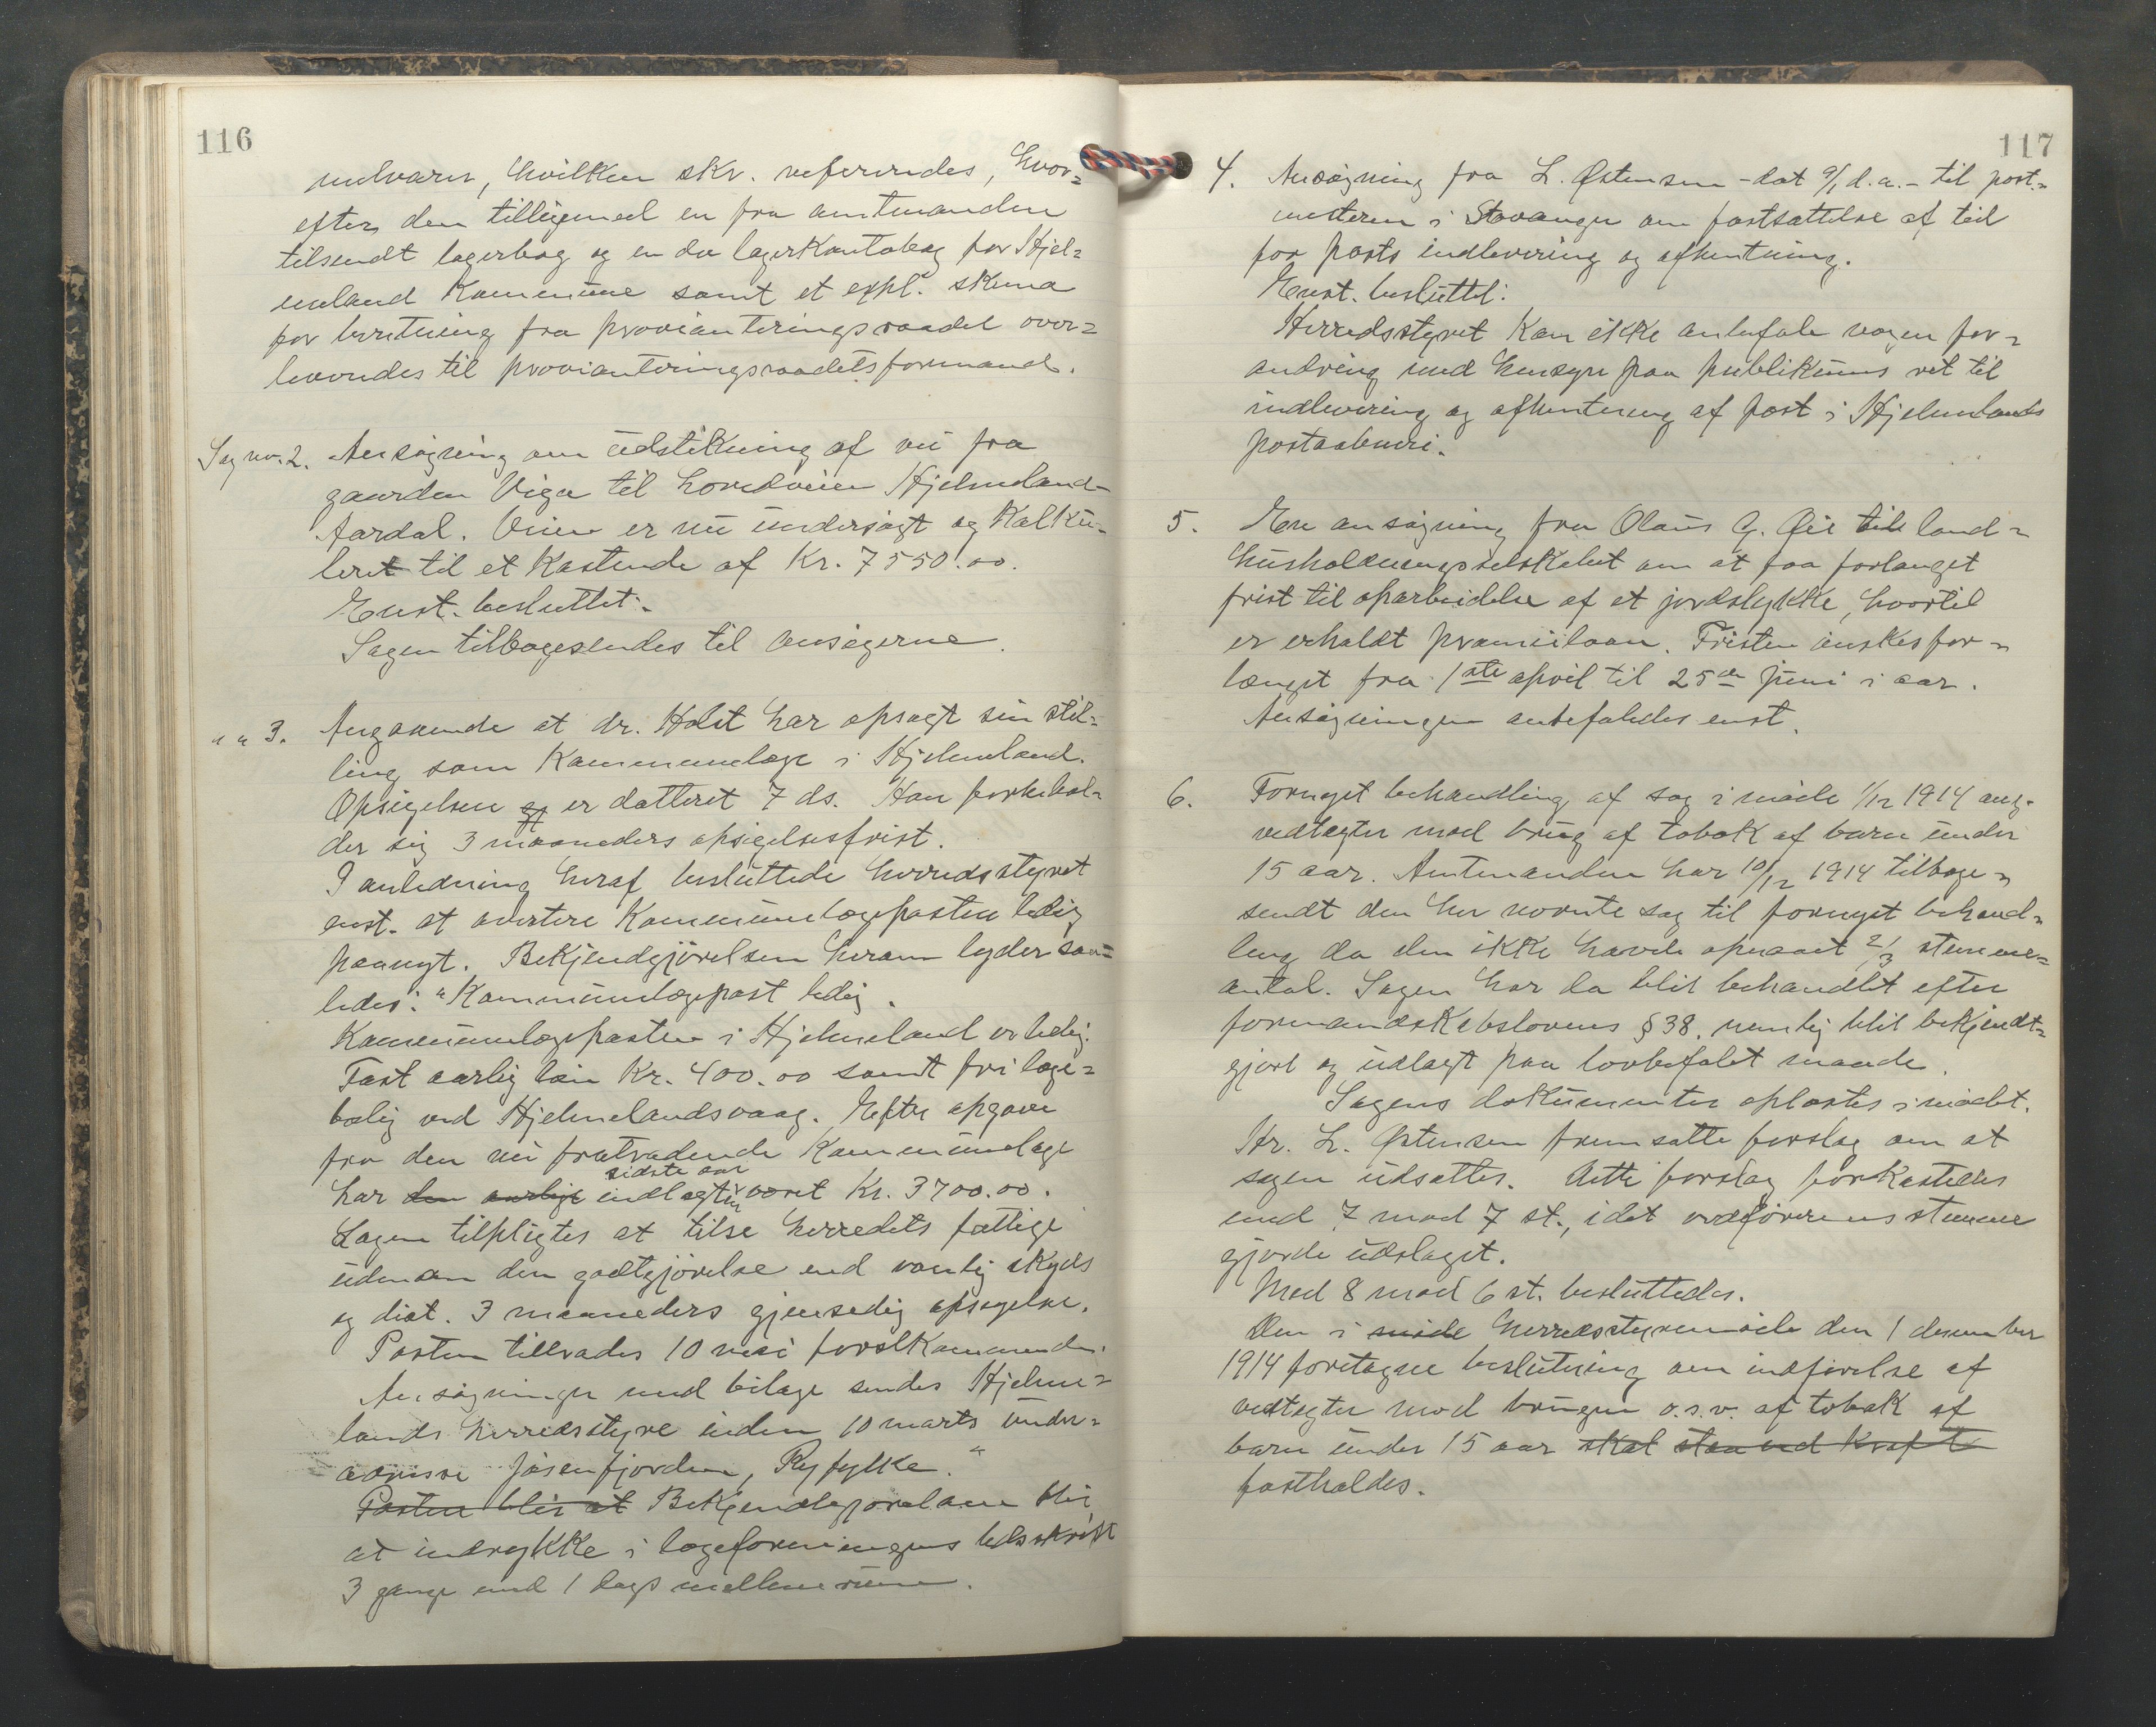 116
melvarer, hvilken skr. refereredes, hvor=
efter den tilligemed en fra amtmanden
tilsendt lagerbog og en do lagerkontobog for Hjel=
meland kommune samt et expl. skema
for beretning fra provianteringsraadet over=
leveredes til provianteringsraadets formand.
Sag nr. 2. Ansøgning om udstikning af vei fra
gaarden Viga til hovedveien Hjelmeland-
Aardal. Veien er nu undersøgt og kalku-
leret til et kostende af Kr. 7550.00.
Enst. besluttet:
Sagen tilbagesendes til ansøgerne.
" " 3. Angaaende at dr. Holst har opsagt sin stil=
ling som kommunelæge i Hjelmeland.
Opsigelsen er datteret 7 ds. Han forbehol-
der sig 3 maaneders opsigelsesfrist.
I anledning heraf besluttede herredsstyret
enst. at avertere kommunelægeposten ledig
paanyt. Bekjendgjørelsen herom lyder saa=
ledes: "Kommunelægepost ledig.
Kommunelægeposten i Hjelmeland er ledig.
Fast aarlig løn Kr. 400.00 samt fri læge=
bolig ved Hjelmelandsvaag. Efter opgave
fra den nu fratrædende kommunelæge
sidste aar
har den aarlige indtægten været Kr. 3700.00.
Lægen tilpligtes at tilse herredets fattige
uden an den godtgjørelse end vanlig skyds
og diæt. 3 maaneders gjensidig opsigelse.
Posten tiltrædes 10 mai førstkommende.
Ansøgninger med bilage sendes Hjelme=
lands herredsstyre inden 10 marts under=
adresse Jøsenfjorden, Ryfylke."
Posten blir at Bekjendtgjørelsen blir
at indrykke i lægeforeningens tidsskrift
3 gange med 1 dags mellemrum.
117
4. Ansøgning fra L. Østensen - dat 9/1 d.a. - til post=
mesteren i Stavanger om fastsættelse af tid
for posts indlevering og afhentning.
Enst. besluttet:
Herredsstyret kan ikke anbefale nogen for=
andring med hensyn paa publikums ret til
indlevering og afhentning af post i Hjelmelands
postaabneri.
5. En ansøgning fra Olaus G. Øie til land=
husholdningsselskabet om at faa forlænget
frist til oparbeidelse af et jordstykke, hvortil
er erholdt præmielaan. Fristen ønskes for=
længet fra 1ste april til 25de juni i aar.
Ansøgningen anbefaledes enst.
6. Fornyet behandling af sag i møde 1/12 1914 ang.
vedtægter mod brug af tobak af barn under
15 aar. Amtmanden har 10/12 1914 tilbage=
sendt den her nævnte sag til fornyet behand=
ling da den ikke havde opnaaet 2/3 stemme=
antal. Sagen har da blit behandlet efter
formandskabslovens § 38, nemlig blit bekjendt=
gjort og udlagt paa lovbefalet maade.
Sagens dokumenter oplæstes i mødet.
Hr. L. Østensen fremsatte forslag om at
sagen udsættes. Dette forslag forkastedes
med 7 mod 7 st., idet ordførerens stemme
gjorde udslaget.
Med 8 mod 6 st. besluttedes.
Den i møde herredsstyremøde den 1 desember
1914 foretagne beslutning om indførelse af
vedtægter mod brugen o.s.v. af tobak af
barn under 15 aar skal staa ved kraft
fastholdes.